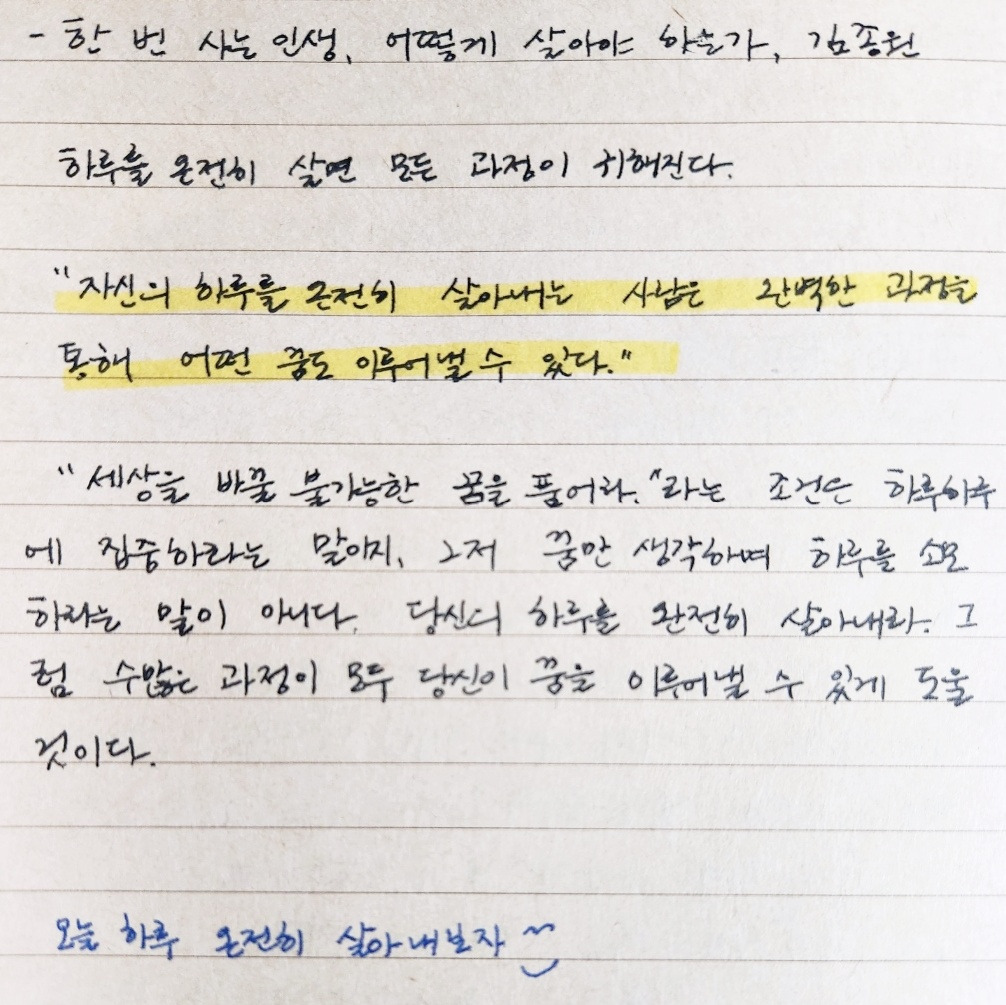 - 한 번 사는 인생, 어떻게 살아야 하는가, 김종원
하루를 온전히 살면 모든 과정이 귀해진다.
"자신의 하루를 온전히 살아내는 사람은 완벽한 과정을
통해 어떤 꿈도 이루어낼 수 있다."
"세상을 바꿀 불가능한 꿈을 품어라."라는 조건은 하루하루
에 집중하라는 말이지, 그저 꿈만 생각하며 하루를 소모
하라는 말이 아니다. 당신의 하루를 완전히 살아내라. 그
럼 수많은 과정이 모두 당신이 꿈을 이루어낼 수 있게 도울
것이다.
오늘 하루 온전히 살아내보자